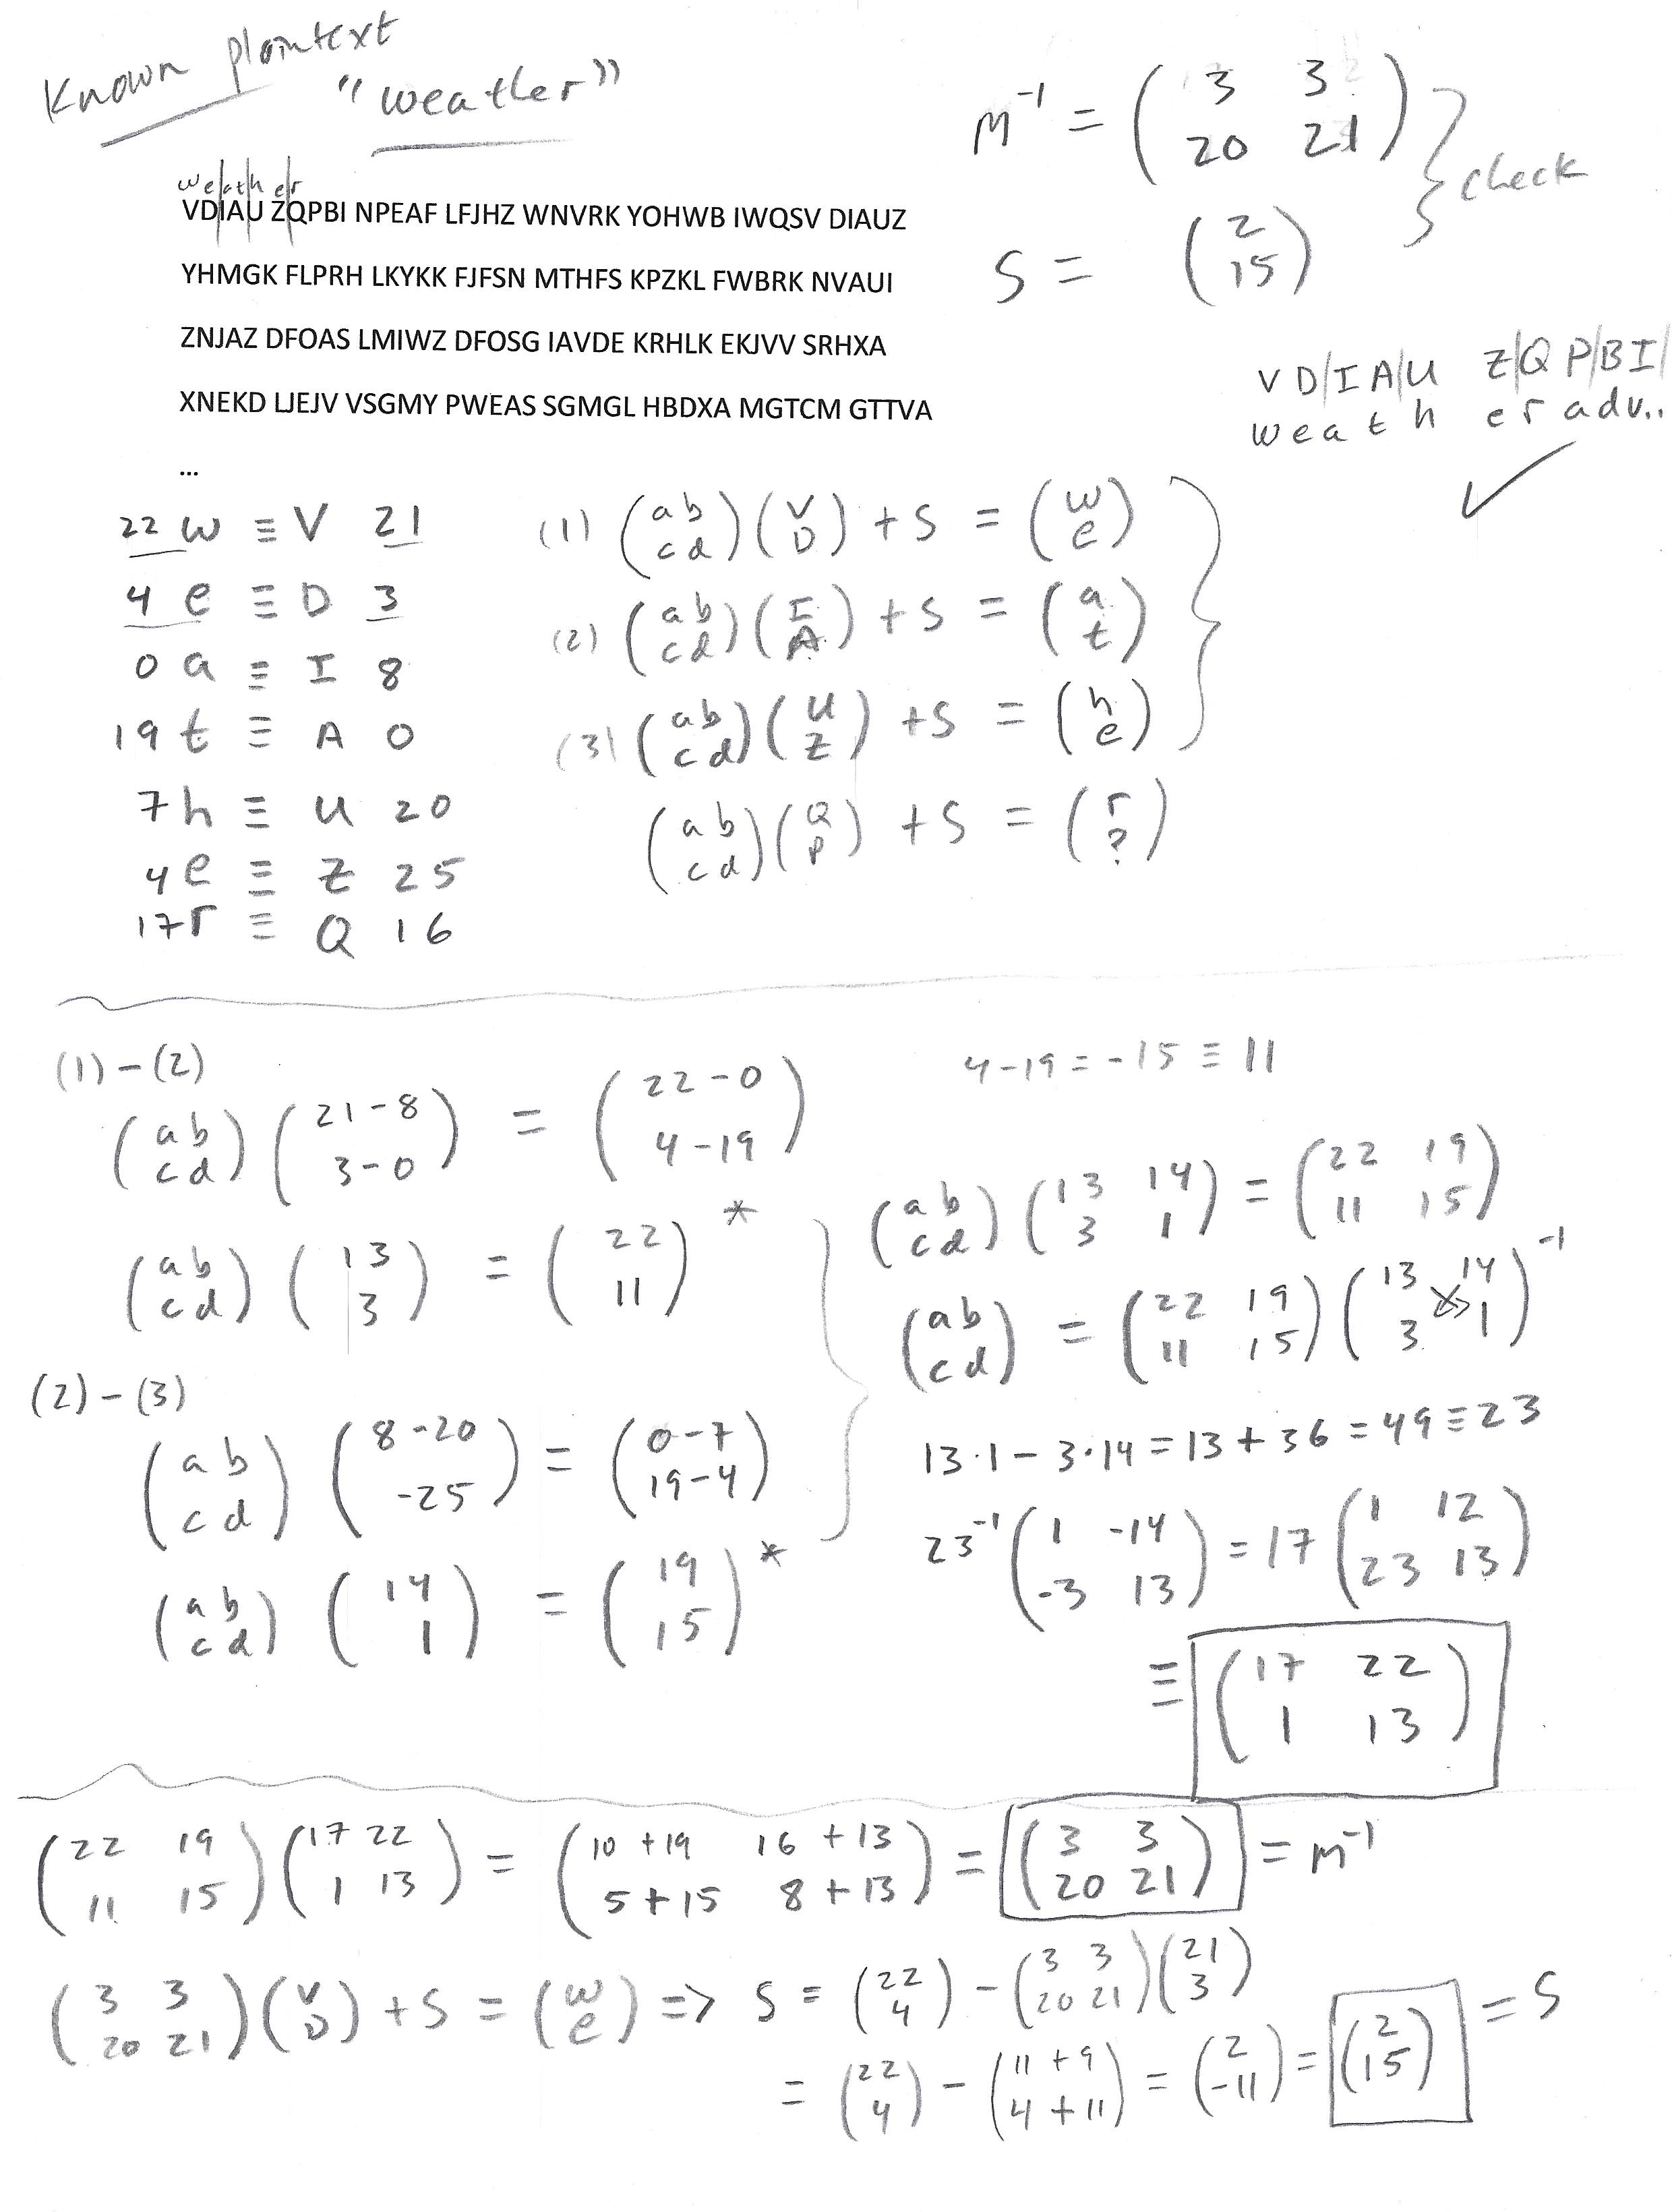 Known plaintext
"weather"
M⁻¹ = ( 3 3 / 20 21 ) } check
S = ( 2 / 15 )
we|at|h er
VDIAU ZQPBI NPEAF LFJHZ WNVRK YOHWB IWQSV DIAUZ
YHMGK FLPRH LKYKK FJFSN MTHFS KPZKL FWBRK NVAUI
ZNJAZ DFOAS LMIWZ DFOSG IAVDE KRHLK EKJVV SRHXA
XNEKD LJEJV VSGMY PWEAS SGMGL HBDXA MGTCM GTTVA
...
V D|I A|U Z|Q P|B I|
w e a t h e r a d v.. ✓
22 w ≡ V 21
4 e ≡ D 3
0 a ≡ I 8
19 t ≡ A 0
7 h ≡ U 20
4 e ≡ Z 25
17 r ≡ Q 16
(1) ( a b / c d ) ( V / D ) + S = ( w / e )
(2) ( a b / c d ) ( I / A ) + S = ( a / t )
(3) ( a b / c d ) ( U / Z ) + S = ( h / e )
( a b / c d ) ( Q / P ) + S = ( r / ? )
(1) - (2)
( a b / c d ) ( 21 - 8 / 3 - 0 ) = ( 22 - 0 / 4 - 19 )
( a b / c d ) ( 13 / 3 ) = ( 22 / 11 ) *
(2) - (3)
( a b / c d ) ( 8 - 20 / -25 ) = ( 0 - 7 / 19 - 4 )
( a b / c d ) ( 14 / 1 ) = ( 19 / 15 ) *
4 - 19 = -15 ≡ 11
( a b / c d ) ( 13 14 / 3 1 ) = ( 22 19 / 11 15 )
( a b / c d ) = ( 22 19 / 11 15 ) ( 13 14 / 3 1 )⁻¹
13·1 - 3·14 = 13 + 36 = 49 ≡ 23
23⁻¹ ( 1 -14 / -3 13 ) = 17 ( 1 12 / 23 13 )
≡ ( 17 22 / 1 13 )
( 22 19 / 11 15 ) ( 17 22 / 1 13 ) = ( 10 + 19 16 + 13 / 5 + 15 8 + 13 ) = ( 3 3 / 20 21 ) = M⁻¹
( 3 3 / 20 21 ) ( V / D ) + S = ( w / e ) => S = ( 22 / 4 ) - ( 3 3 / 20 21 ) ( 21 / 3 )
= ( 22 / 4 ) - ( 11 + 9 / 4 + 11 ) = ( 2 / -11 ) = ( 2 / 15 ) = S